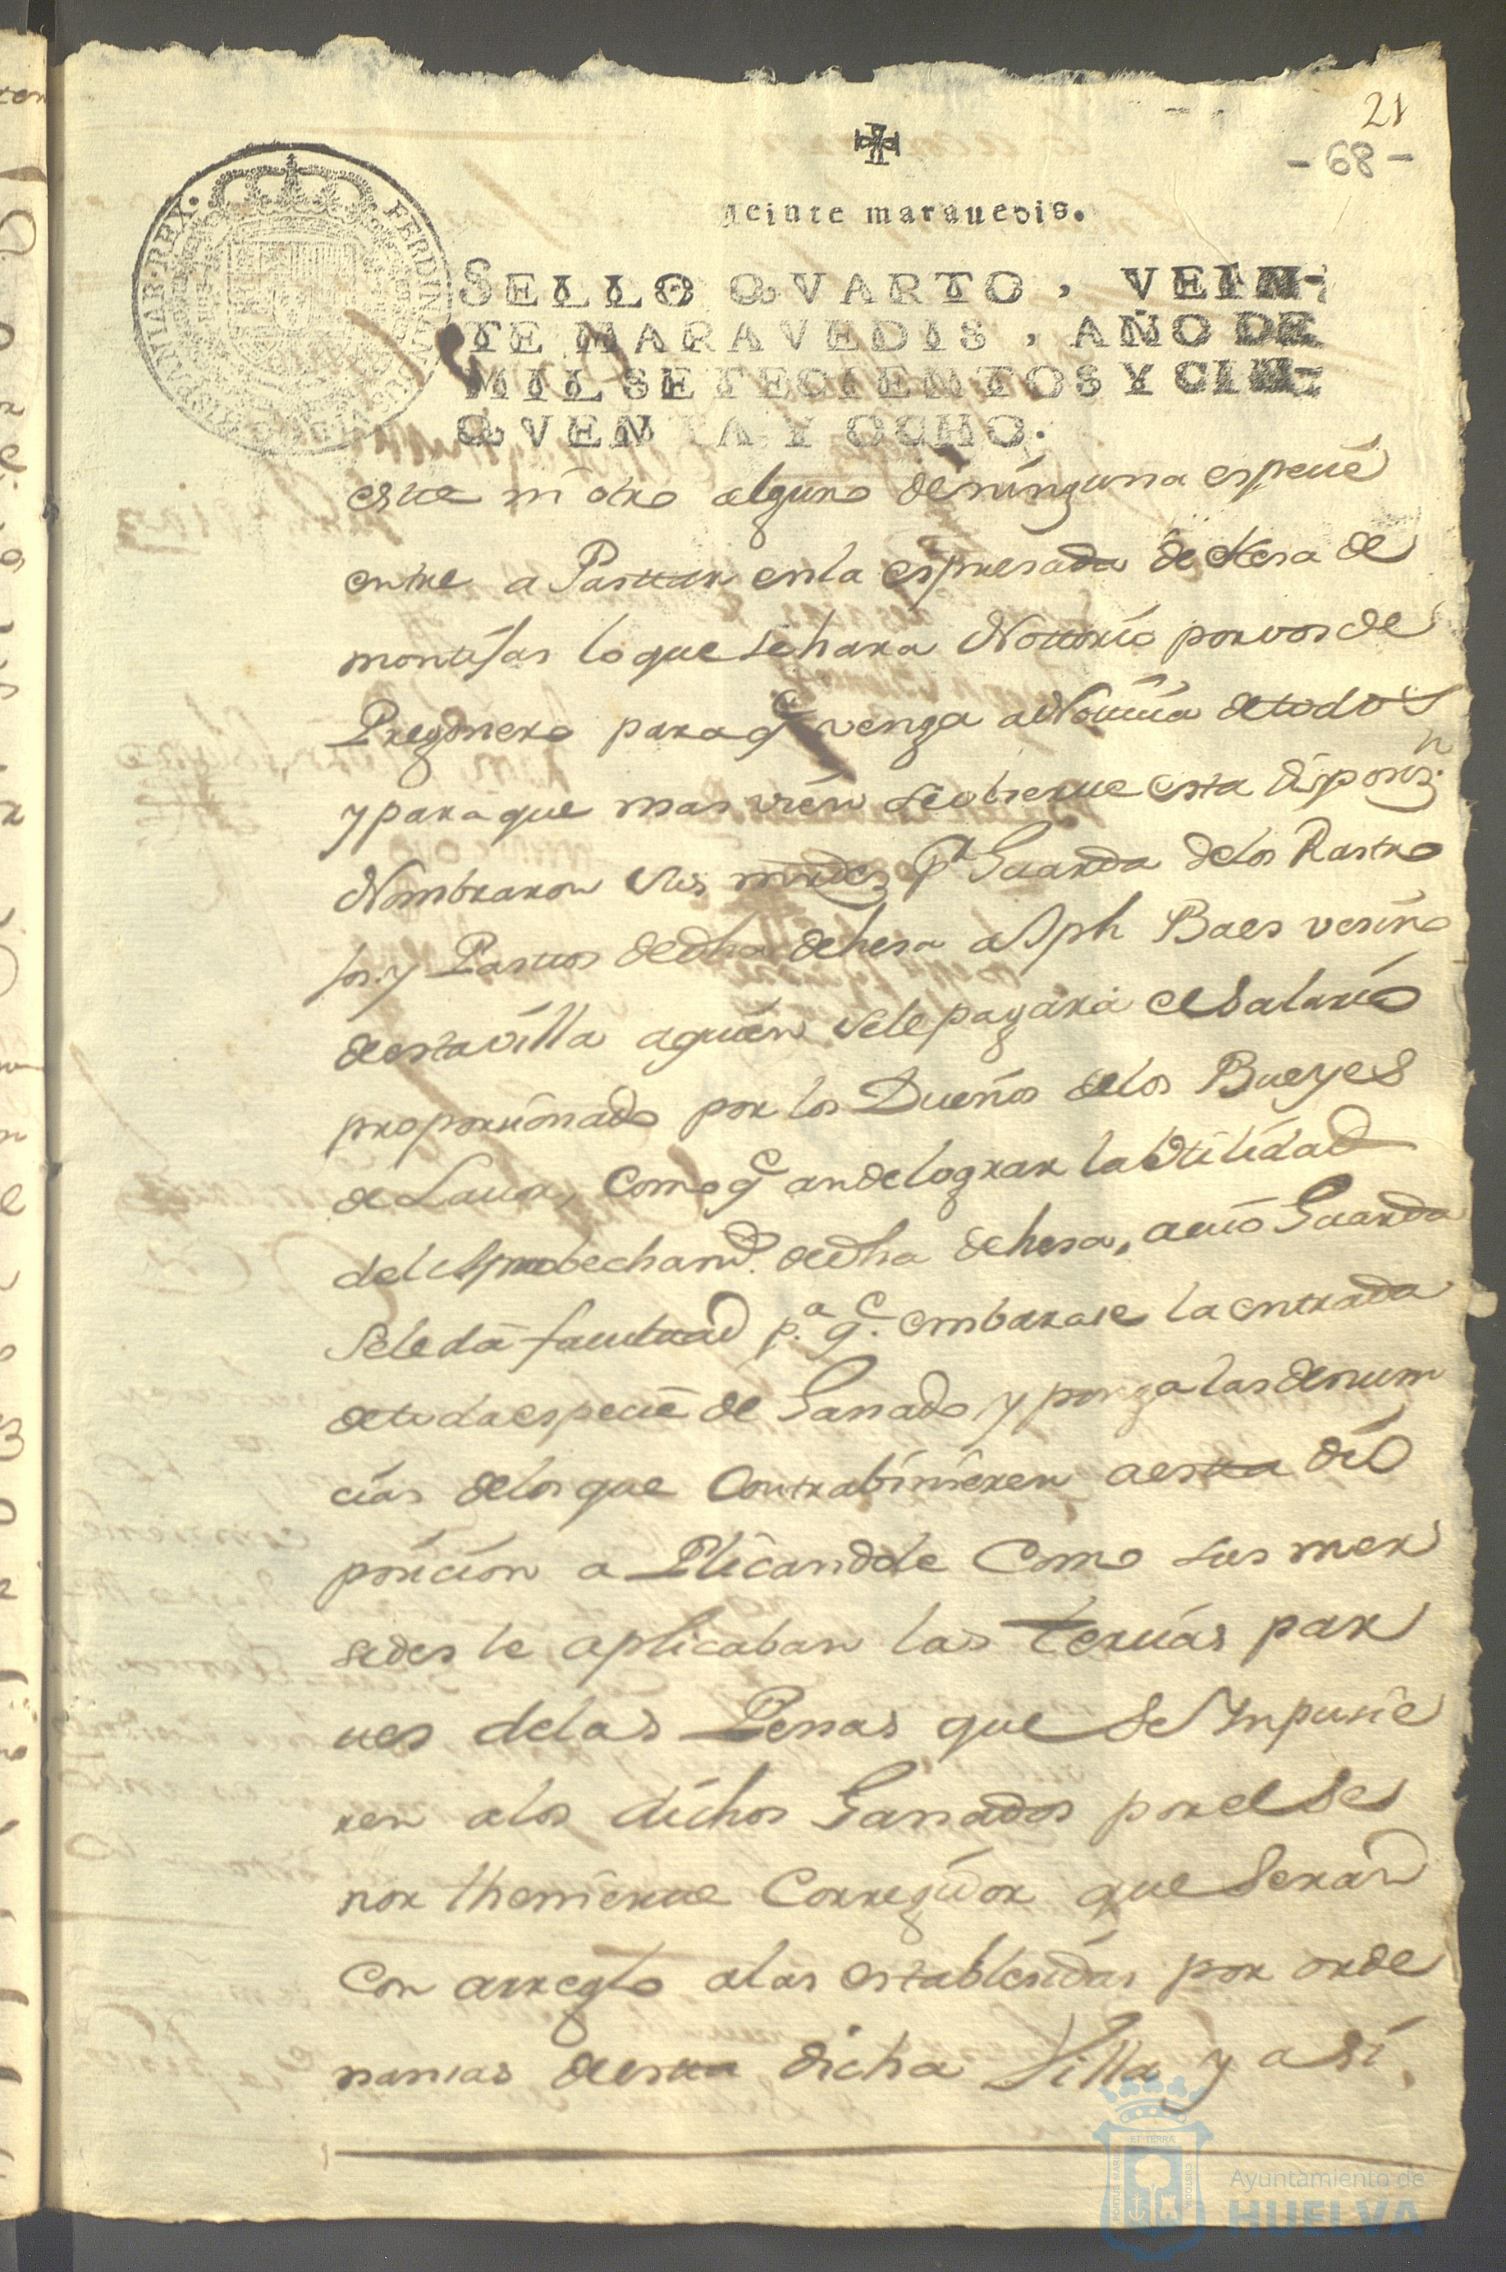 21
- 68 -
Veinte maravedis.
SELLO QVARTO, VEIN-
TE MARAVEDIS, AÑO DE
MIL SETECIENTOS Y CIN-
QVENTA Y OCHO.
HISPANIAR·REX·
este ni otro alguno de ninguna especie
entre a Pastar en la espresada dehesa de
montijas lo que se hara Nottorio por vos de
Pregonero para q^e venga a Noticia de todos
y para que mas vien se observe esta disposiz^n.
Nombraron Sus mrds p^r Guarda de los Rastro
jos y Pastos de dha dehesa a Jph Baes vesino
de esta villa a quien se le pagara el salario
proporsionado por los Dueños de los Bueyes
de Lavor, como q^e an de lograr la Vtilidad
del Aprobecham^to. de dha dehesa, a cuio Guarda
se le da facultad p.^a q^e. embarase la entrada
de toda especie de Ganado y ponga las denun
cias de los que Contrabinieren a esta dis
posicion aPlicandole Como sus mer
sedes le aplicaban las tercias par
tes de las Penas que se Inpusie
ren a los dichos Ganados por el Se
ñor theniente Corregidor que Seran
Con arreglo a las establesidas por orde
nansas de esta dicha Villa y asi
PORTUS MARIS
ET TERRÆ
CUSTODIA
Ayuntamiento de
HUELVA